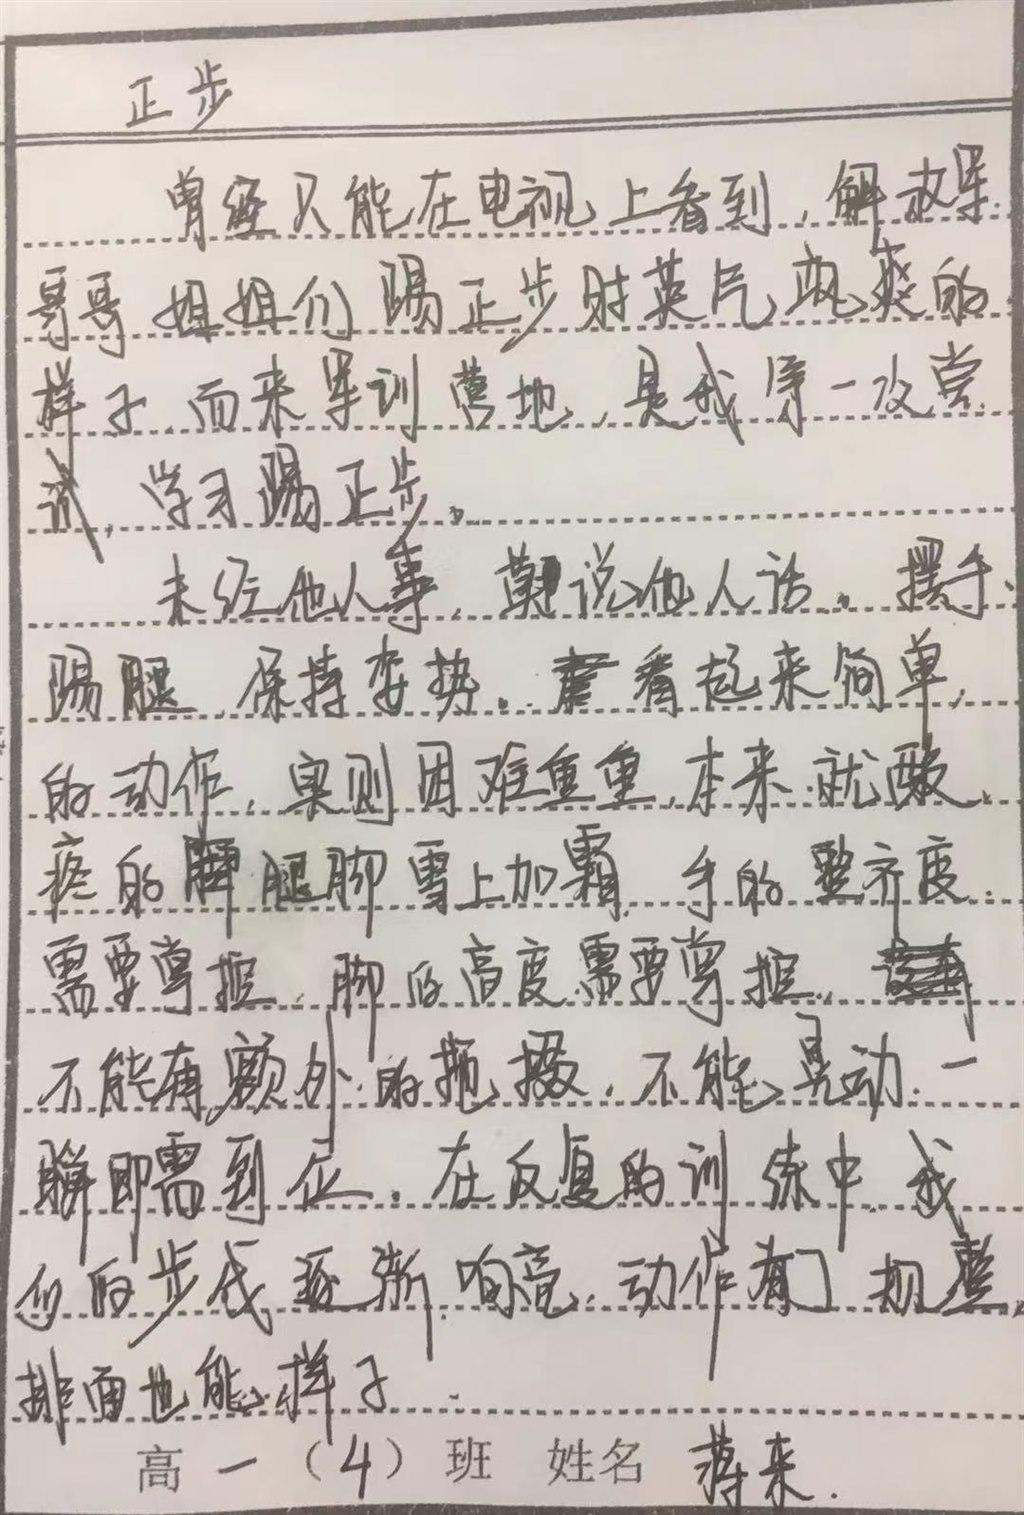 正步
曾经只能在电视上看到,解放军
哥哥姐姐们踢正步时英气飒爽的
样子,而来军训营地,是我第一次尝
试,学习踢正步。
未经他人事,莫说他人话。摆手、
踢腿,保持姿势。看起来简单,
的动作,实则困难重重,本来就酸
疼的腿脚雪上加霜,手的整齐度
需要掌控,脚的高度需要掌控,
不能有额外的拖摄,不能晃动,一
瞬即需到位。在反复的训练中,我
们的步伐逐渐响亮,动作有了初整,
排面也能样子.
高一(4)班 姓名 蒋来.